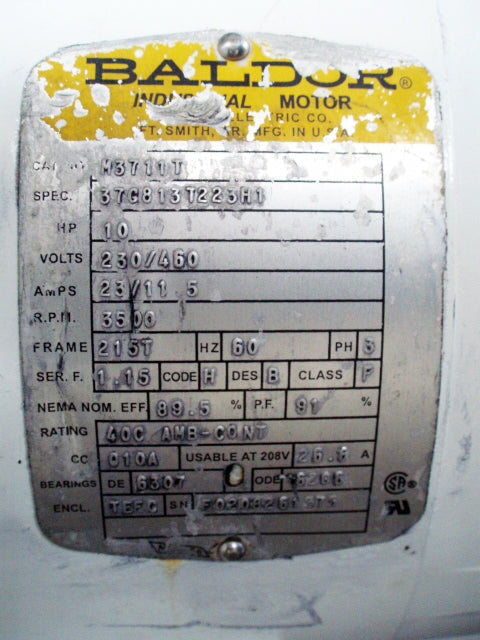 BALDOR®
INDUSTRIAL MOTOR
ELECTRIC CO.
FT. SMITH, AR. MFG. IN U.S.A.
CAT. NO. M3711T
SPEC. 37G813T223H1
HP 10
VOLTS 230/460
AMPS 23/11.5
R.P.M. 3500
FRAME 215T HZ 60 PH 3
SER. F. 1.15 CODE H DES B CLASS F
NEMA NOM. EFF. 89.5 % P.F. 91 %
RATING 40C AMB-CONT
CC 010A USABLE AT 208V 26.8 A
BEARINGS DE 6307 ODE 6206
ENCL. TEFC SN
SA®